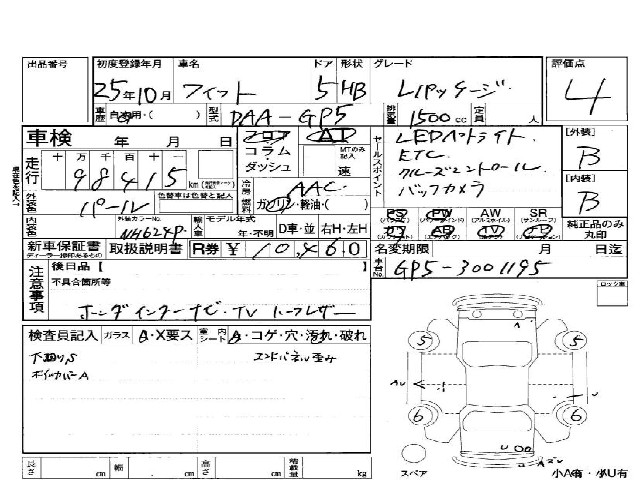 出品番号 初度登録年月 車名 ドア 形状 グレード 評価点
25年10月 フィット 5 HB Lパッケージ 4
車歴 自家用・( ) 型式 DAA-GP5 排気量 1500cc 定員 人
車検 年 月 日 フロア AT セールスポイント LEDヘッドライト [外装]
走行 十 万 千 百 十 一 コラム・ MTのみ記入 ETC B
98415 km ダッシュ 速 クルーズコントロール
外装色 パール 色替車は色替と記入 冷房 AAC バックカメラ [内装]
燃料 ガソリン・軽油・( ) B
内装色 外装カラーNo. NH624P 輸入車 モデル年式 年・不明 D車・並 右H・左H
PS PW AW SR 純正品のみ丸印
新車保証書 取扱説明書 R券 ¥ 10,460 名変期限 月 日迄
ディーラー捺印あるもの
車台No. GP5-3001195
注意事項 後日品【 】
不具合箇所等 ロック車
ホンダインターナビ・TV ハーフレザー
検査員記入 ガラス A・X要ス 室内 シート A・コゲ・穴・汚れ・破れ
下廻りS エンドパネル歪み
ホイルカバーA
5 5
A
AU U
6 6
U
長さ cm 幅 cm 高さ cm 積載量 kg スペア 小A有・小U有